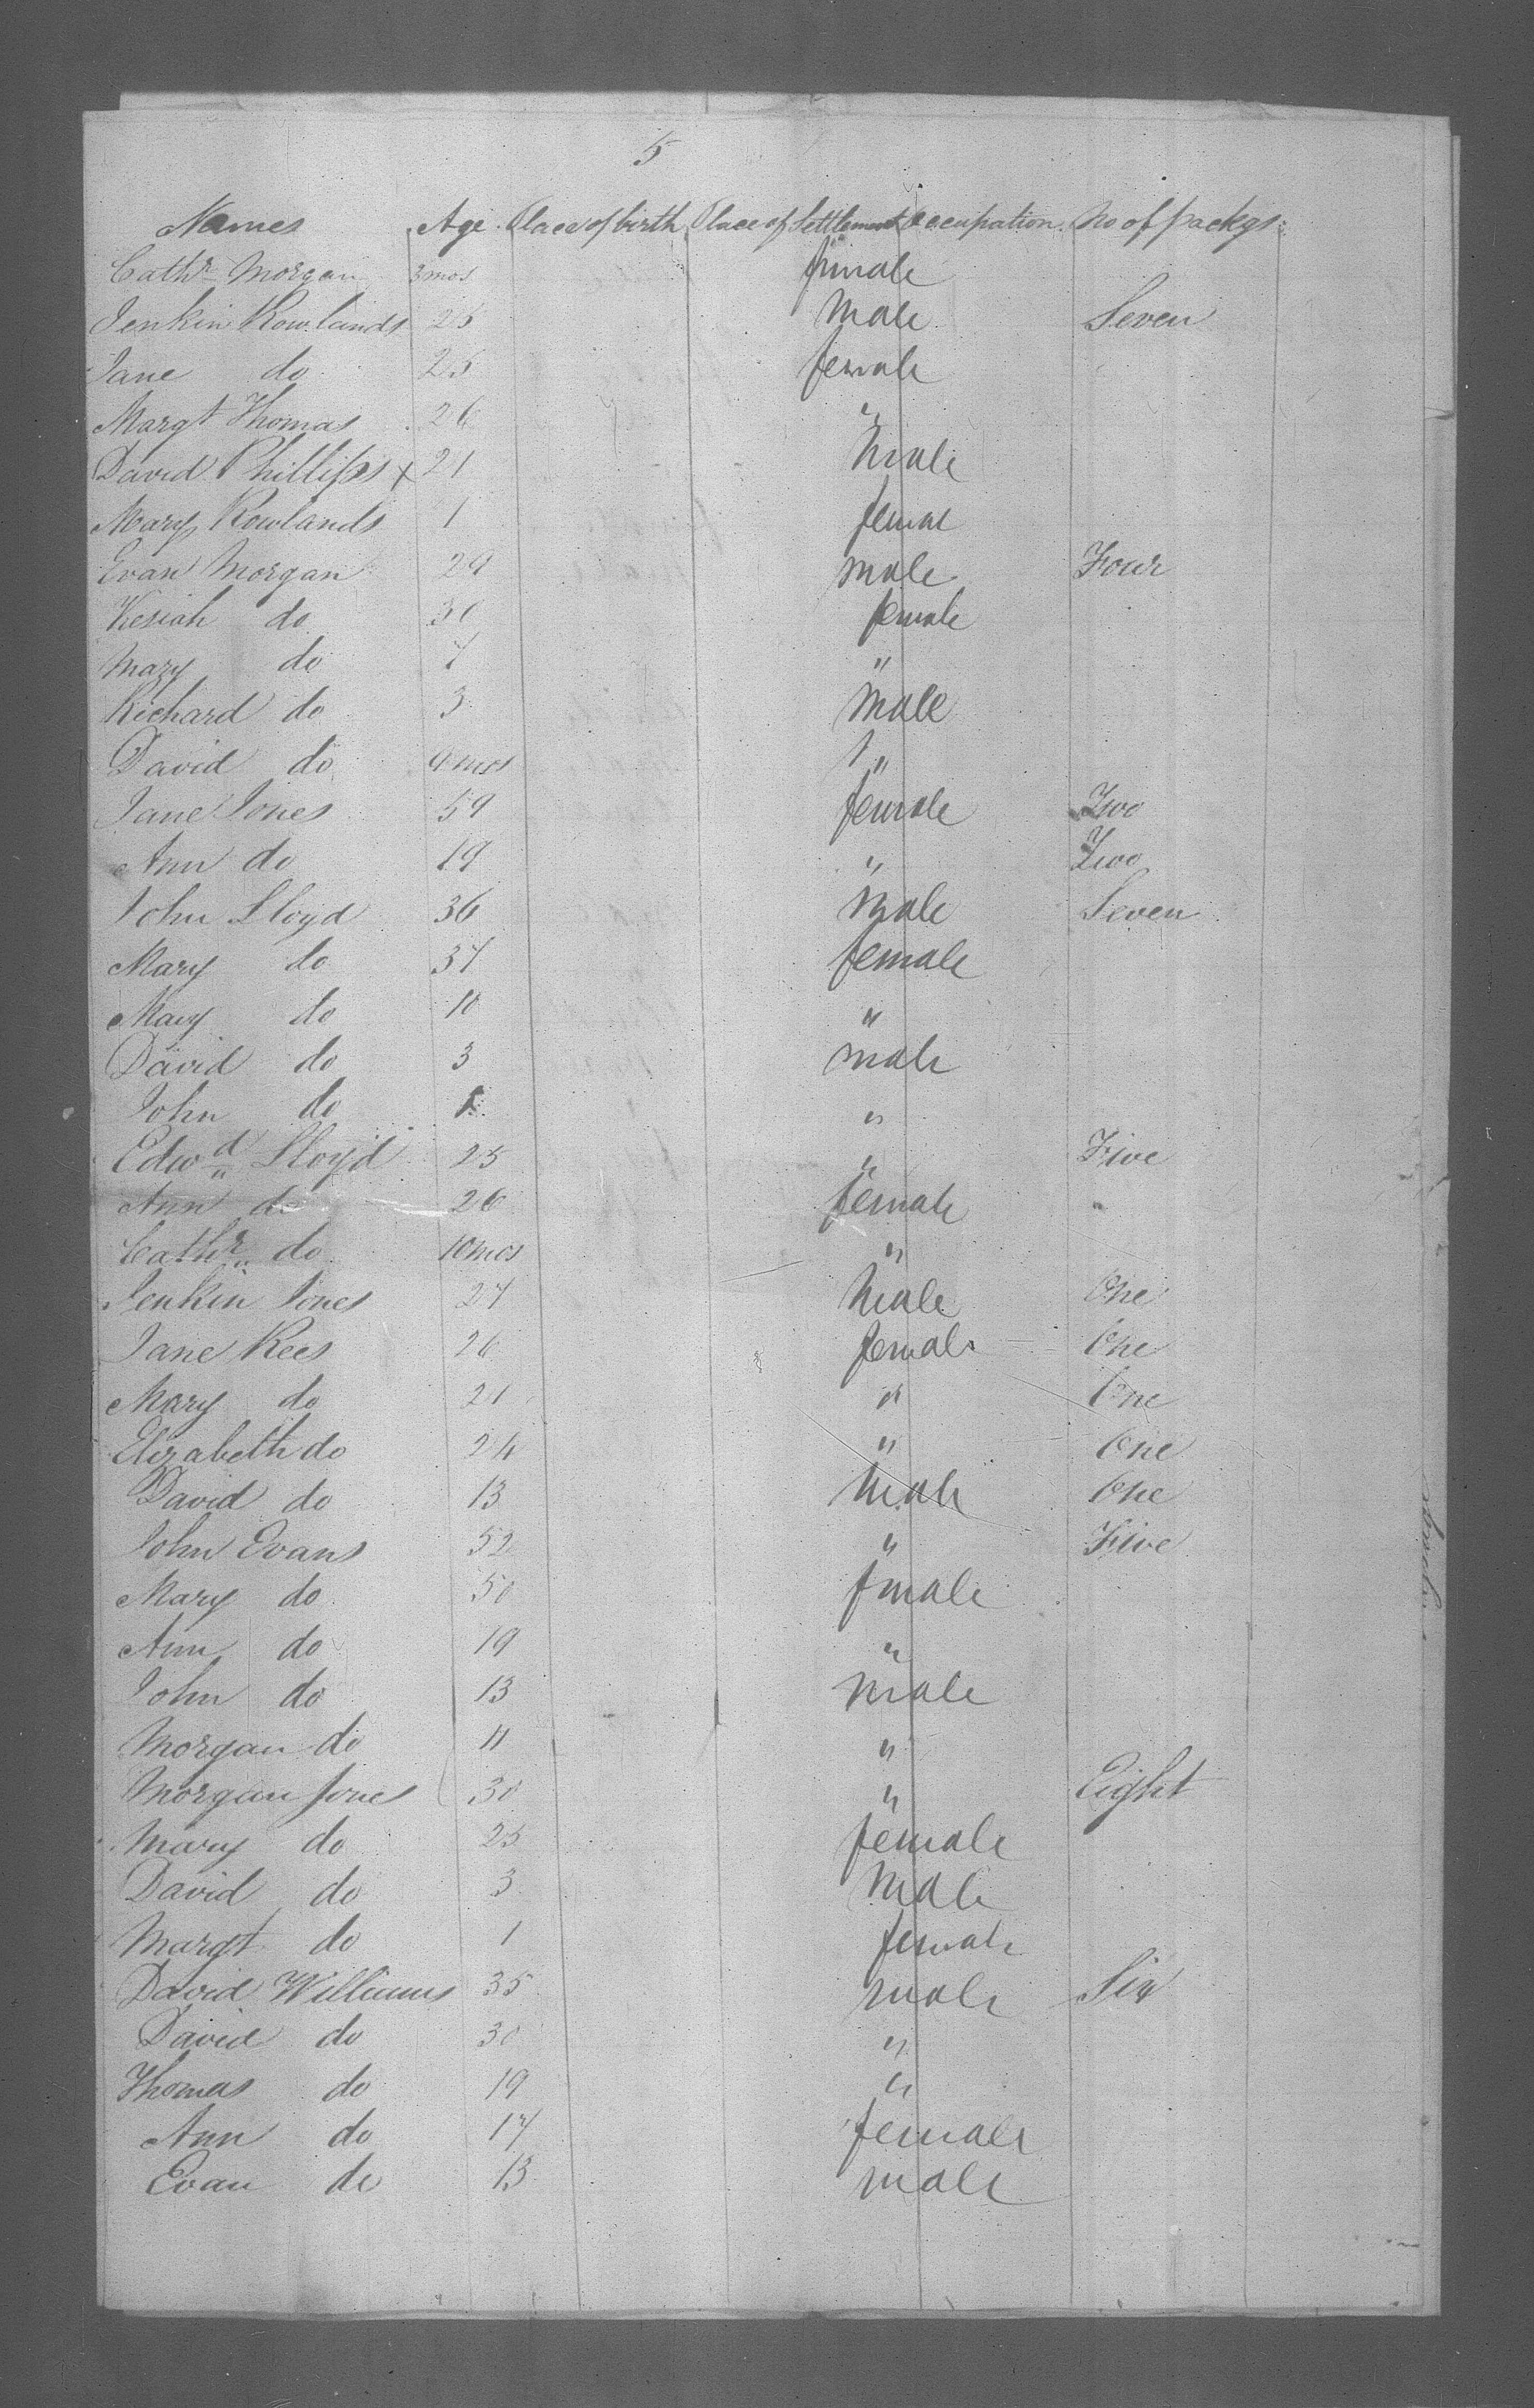 5
Names Age Place of birth Place of Settlement Occupation No of packgs
Cathr Morgan 3 mos female
Jenkin Rowlands 25 male Seven
Jane do 25 female
Margt Thomas 26 "
David Phillips x 21 male
Mary Rowlands 1 femal
Evan Morgan 29 male Four
Kesiah do 30 female
Mary do 7 "
Richard do 3 male
David do 9 mos "
Jane Jones 59 female Two
Ann do 19 " Two
John Lloyd 36 male Seven
Mary do 37 female
Mary do 10 "
David do 3 male
John do "
Edwd Lloyd 25 " Five
Ann do 26 female
Cathr do 10 mos "
Jenkin Jones 27 male One
Jane Rees 26 female One
Mary do 21 " One
Elizabeth do 24 " One
David do 13 male One
John Evans 52 " Five
Mary do 50 fmale
Ann do 19 "
John do 13 male
Morgan do 11 "
Morgan Jones 30 " Eight
Mary do 25 female
David do 3 male
Margt do 1 female
David Williams 35 male Six
David do 30 "
Thomas do 19 "
Ann do 17 female
Evan do 13 male